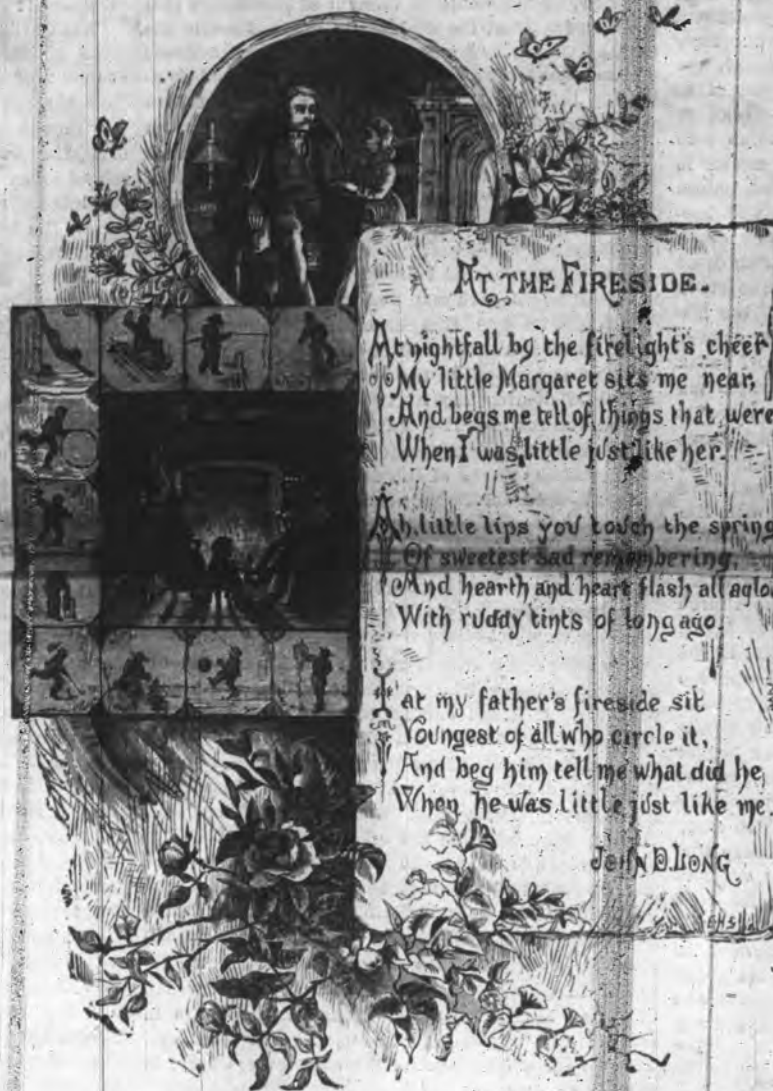 AT THE FIRESIDE.
At nightfall by the firelight's cheer
My little Margaret sits me near,
And begs me tell of things that were
When I was little just like her.
Ah, little lips you touch the spring
Of sweetest sad remembering,
And hearth and heart flash all aglo
With ruddy tints of long ago.
I at my father's fireside sit
Youngest of all who circle it,
And beg him tell me what did he
When he was little just like me.
JOHN D. LONG